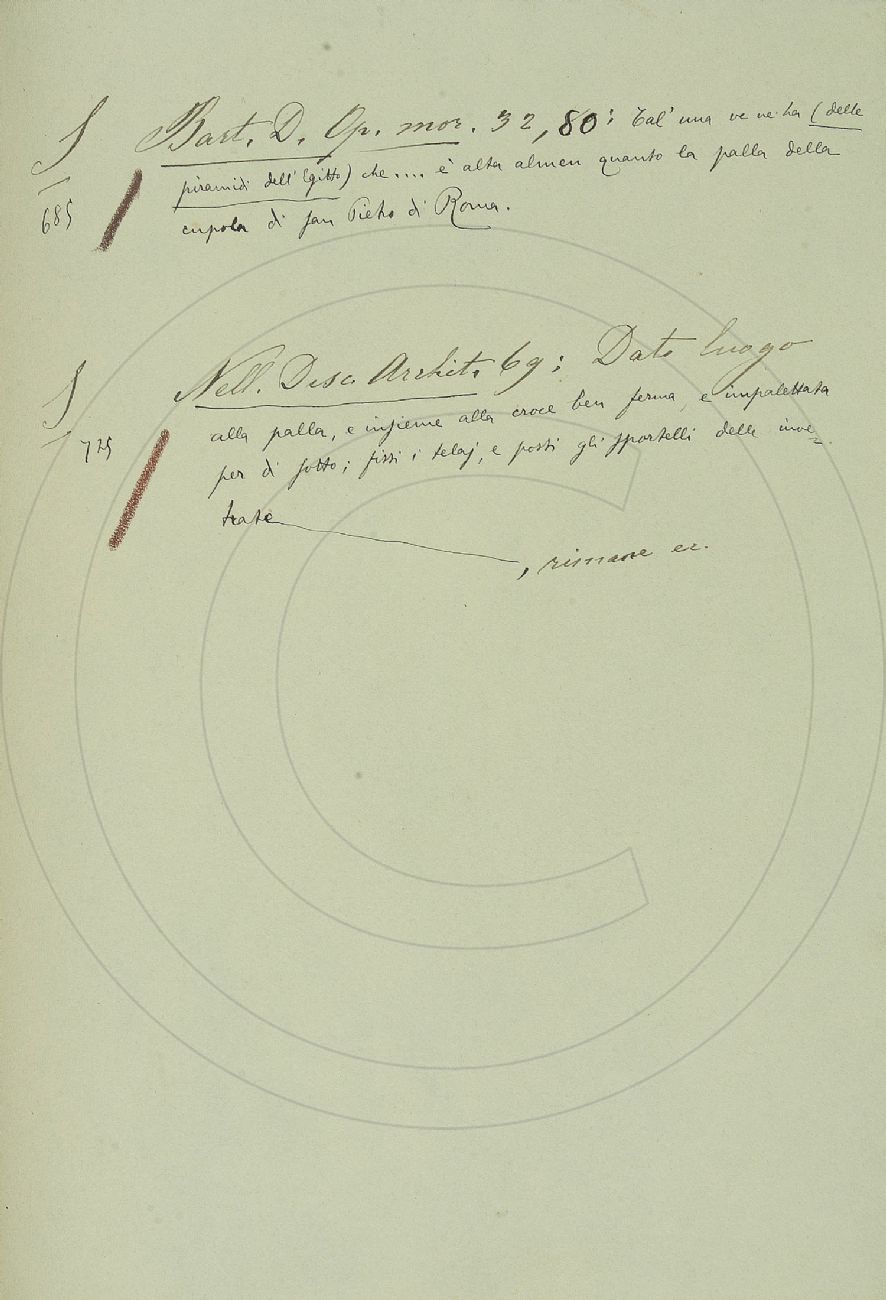 S Bart. D. Op. mor. 32, 80: Tal' una ve ne ha (delle
685 piramidi dell'Egitto) che.... è alta almen quanto la palla della
cupola di san Pietro di Roma.
S Nell. Disc. Archit. 69: Dato luogo
725 alla palla, e insieme alla croce ben ferma, e impalettata
per di sotto; fissi i telaj, e posti gli sportelli delle inve-
trate
, rimane ec.